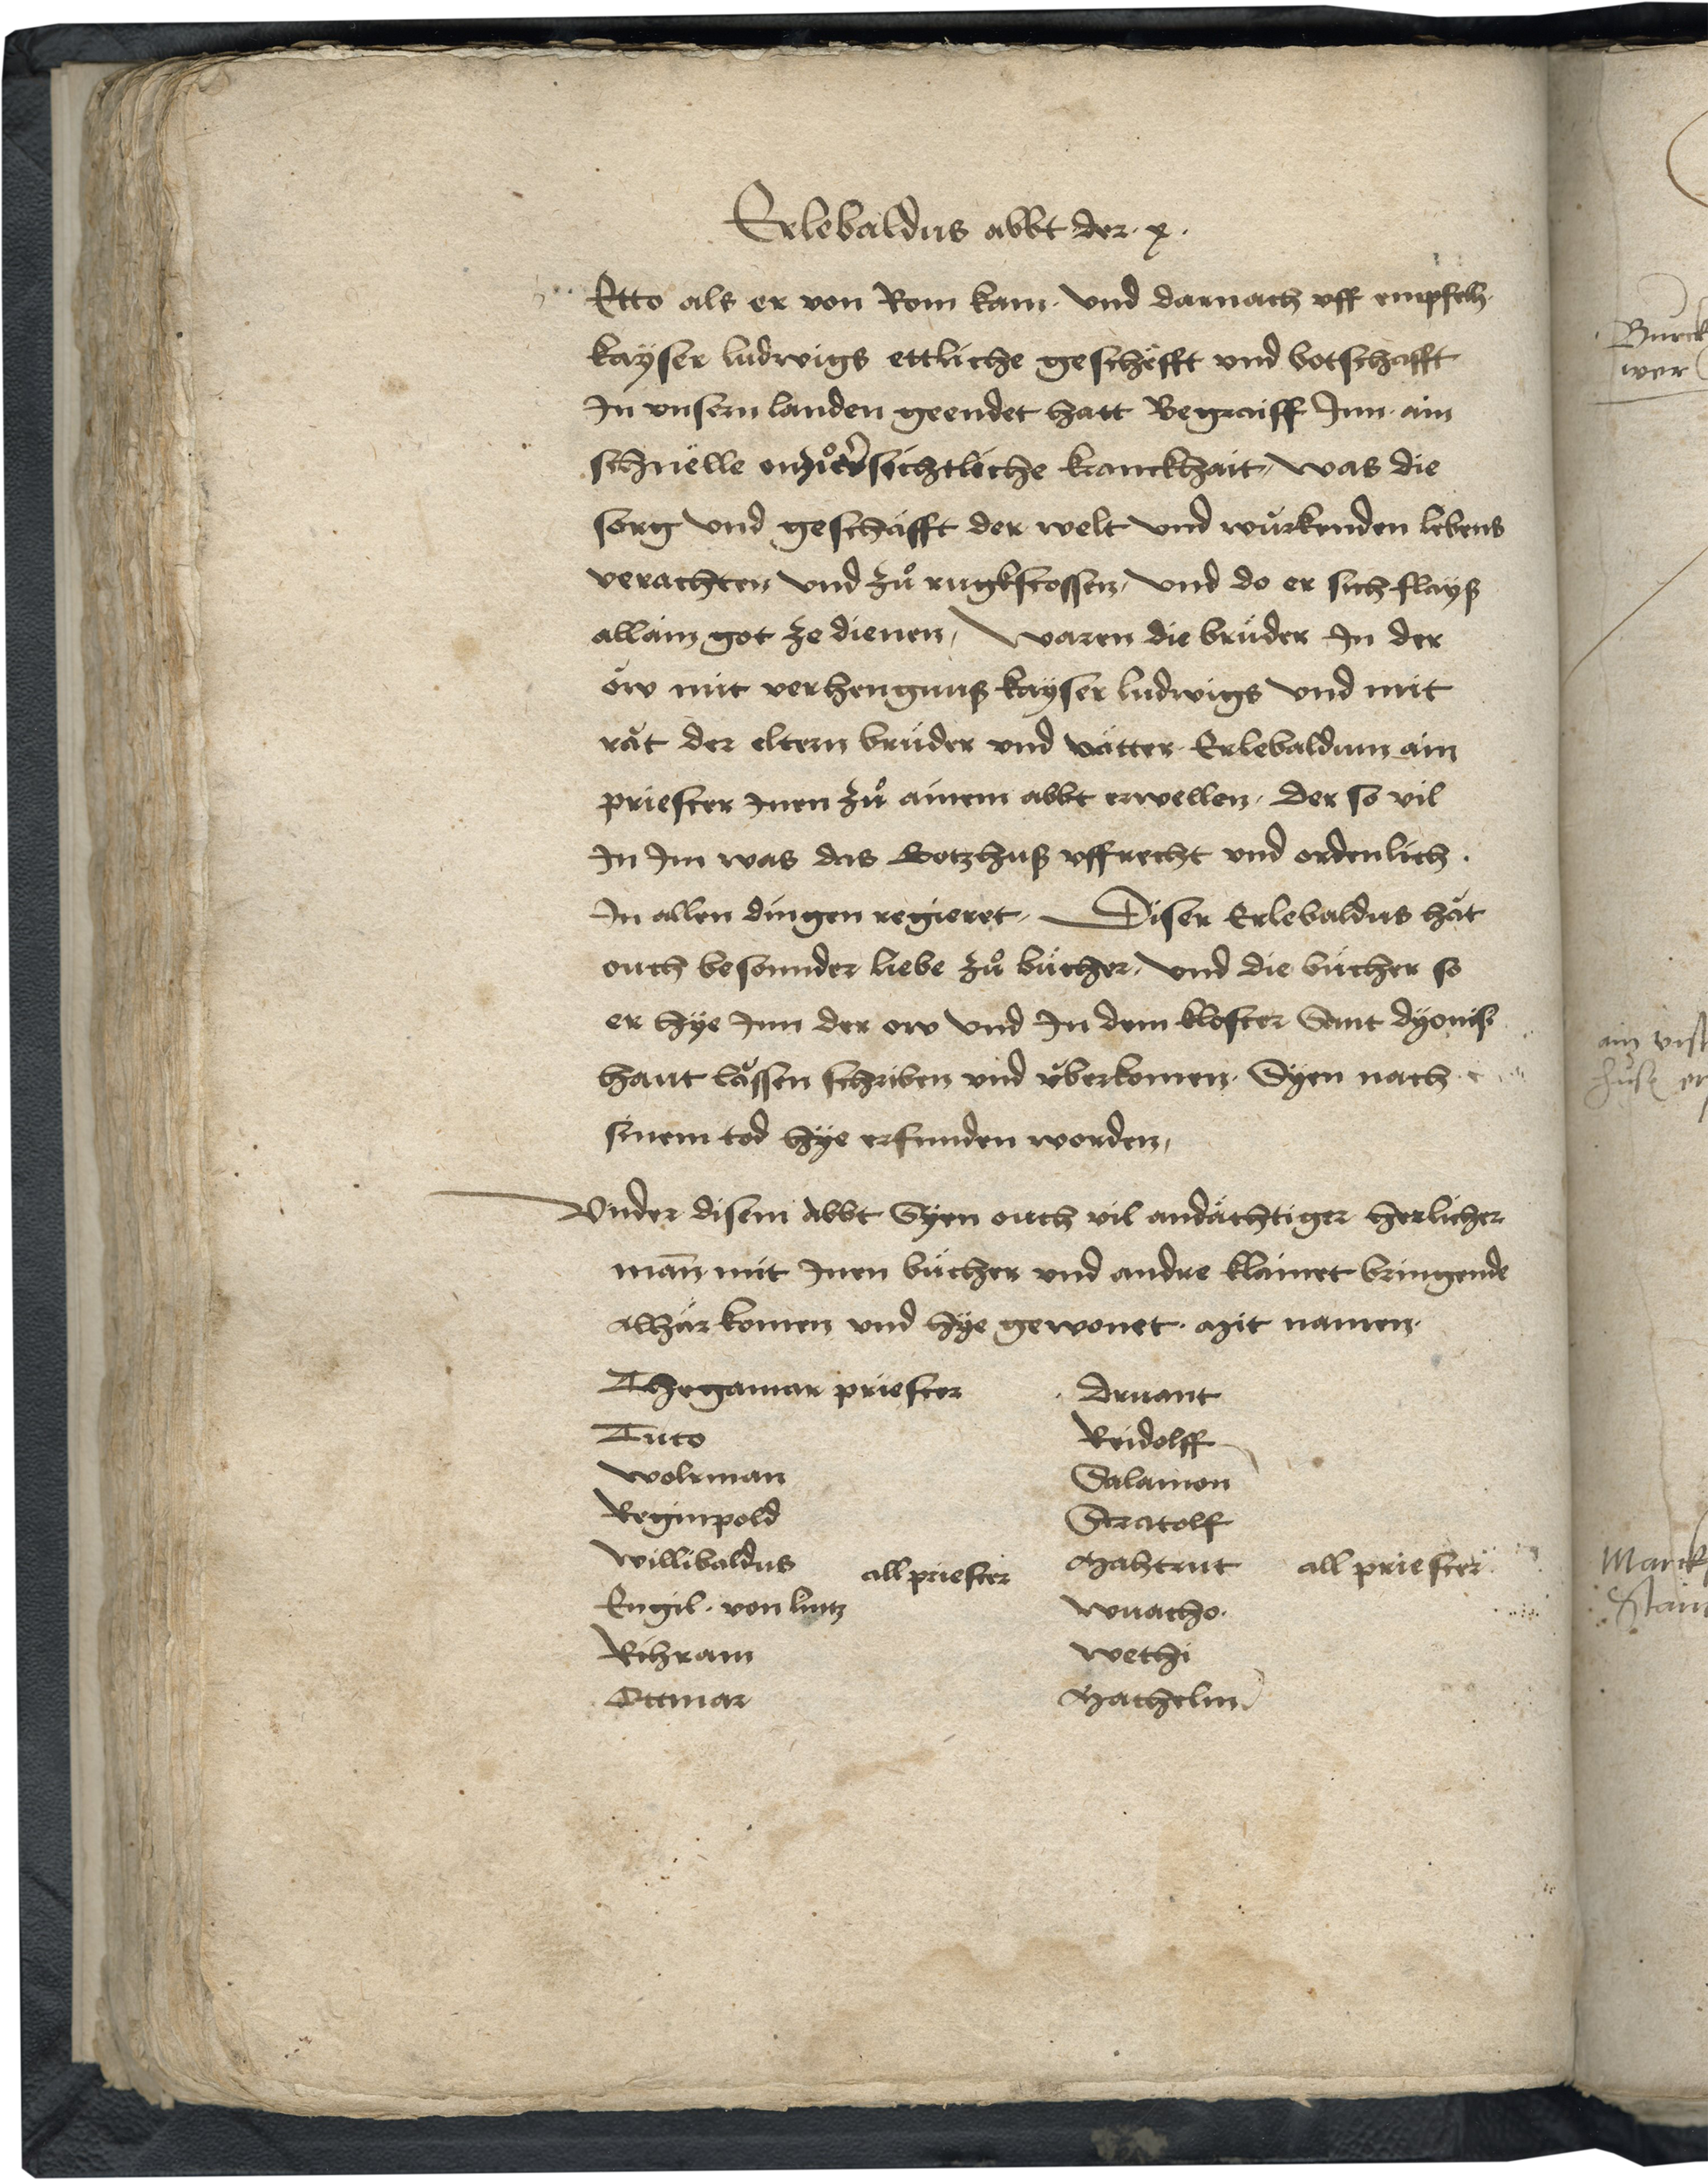 Erlebaldus abbt der · x ·
Etto als er von Rom kam · vnd darnach vff empfelh
kaÿser ludwigs ettliche geschëfft vnd botschafft
In vnsern landen geendet hatt Begraiff Inn ain
schnëlle onzůversichtliche kranckhait, was die
sorg vnd geschäfft der welt vnd würkenden lebens
verachten vnd zů rugkstossen, vnd do er sich flayß
allain got ze dienen, Waren die brüder In der
ow mit verhengnuß kayser ludwigs vnd mit
råt der eltern brüder vnd vätter Erlebaldum ain
priester Inen zů ainem abbt erwellen, der so vil
In Im was das Gotzhuß vffrecht vnd ordenlich ·
In allen dingen regieret, Diser Erlebaldus håt
ouch besonnder liebe zů bücher, vnd die bücher so
er hÿe Inn der ow vnd In dem kloster Sant dyonisi
hant låssen schriben vnd überkomen, Syen nach
sinem tod hÿe erfunden worden,
Vnder disem Abbt Syen ouch vil andächtiger herlicher
man mit Inen bücher vnd andre klainet bringende
alhär komen vnd hÿe gewonet · Mit namen ·
Thegamar priester
Tuto
Wolrman
Reginpold
Willibaldus all priester
Engil · von lintz
Rihram
Ottmar
Druant
Reidolff
Salamon
Stratolf
Mahtrut all priester
Wnacho
Wethi
Hathelm
Burck
wer
ain
Marck
Stain